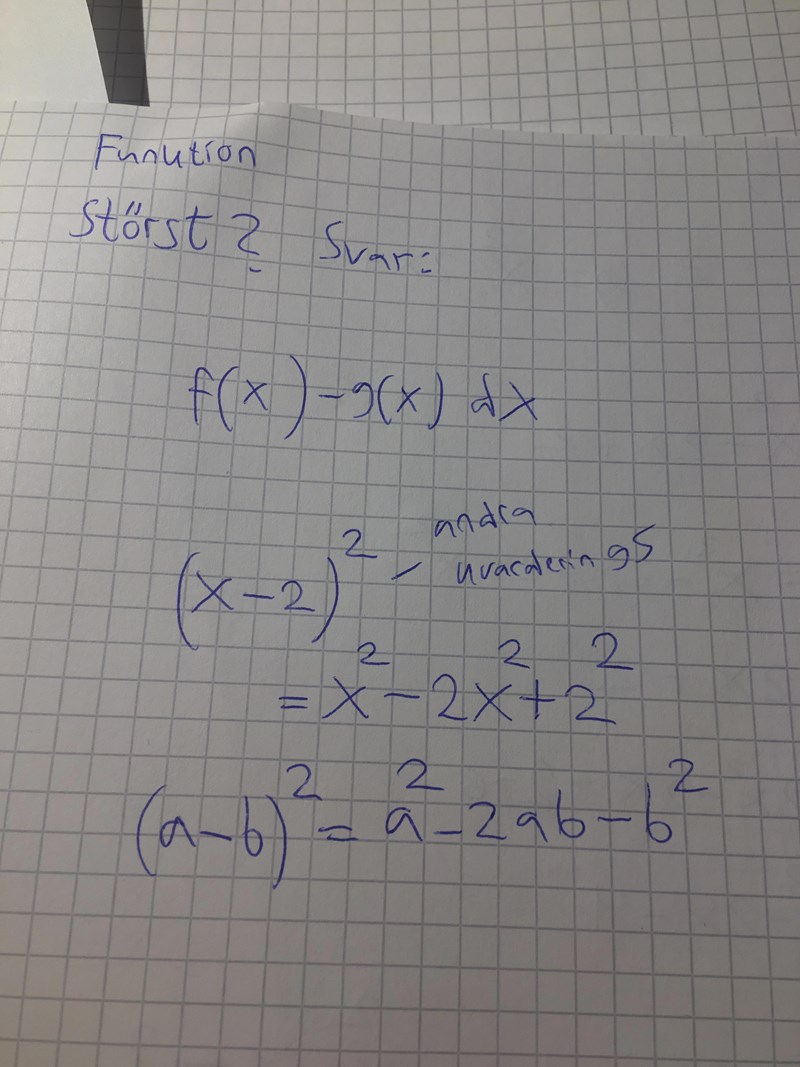 Funution
Störst? Svar:
f(x)-g(x) dx
(x-2)² - andra
uvaderings
= x²-2x²+2²
(a-b)² = a²-2ab-b²